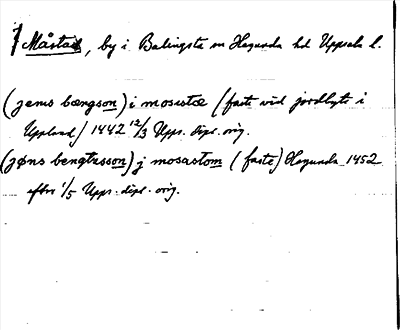 Måstad, by i Balingsta sn Hagunda hd Uppsala l.
(jems bængson) i mosistæ (faste vid jordbyte i
Uppland) 1442 12/3 Upps. dipl. orig.
(jøns bengtsson) j mosastom (faste) Hagunda 1452
efter 1/5 Upps. dipl. orig.